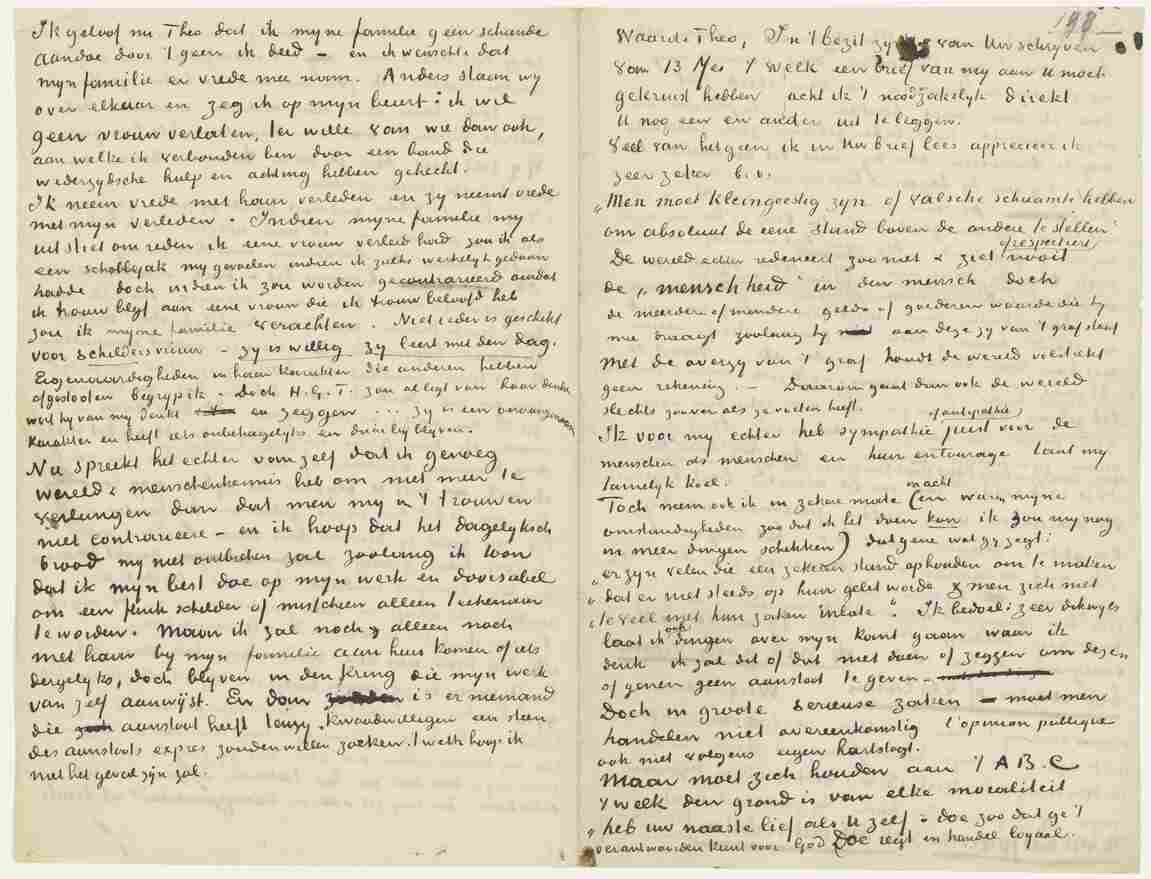 Ik geloof nu Theo dat ik myne familie geen schande
aandoe door 't geen ik deed – en ik wenschte dat
myn familie er vrede mee nam. Anders staan wy
over elkaar en zeg ik op myn beurt: ik wil
geen vrouw verlaten, ter wille van wie dan ook,
aan welke ik verbonden ben door een band die
wederzydsche hulp en achting hebben gehecht.
Ik neem vrede met haar verleden en zy neemt vrede
met myn verleden. Indien myne familie my
uitstiet om reden ik eene vrouw verleid had zou ik als
een schobbejak my gevoelen indien ik zulks werkelyk gedaan
hadde doch indien ik zou worden gecontrarieerd omdat
ik trouw blyf aan eene vrouw die ik trouw beloofd heb
zou ik myne familie verachten. Niet ieder is geschikt
voor schildersvrouw – zy is willig zy leert met den dag.
Eigenaardigheden in haren karakter die anderen hebben
afgestooten begryp ik. Doch H.G.T. zou allegt van haar denken
wat hy van my denkt en zeggen ... zy is een onaangenaam
karakter en heeft iets onbehagelyks en daar bij blyven.
Nu spreekt het echter van zelf dat ik genoeg
wereld & menschenkennis heb om niet meer te
verlangen dan dat men my in 't trouwen
niet contrariëere – en ik hoop dat het dagelyksch
brood my niet ontbreken zal zoolang ik toon
dat ik mijn best doe op myn werk en doorsabel
om een flink schilder of misschien alleen teekenaar
te worden. Maar ik zal noch alleen noch
met haar by myn familie aan huis komen of iets
dergelyks, doch blyven in den kring die myn werk
van zelf aanwijst. En dan is er niemand
die aanstoot heeft tenzy kwaadwilligen een steen
des aanstoots expres zouden willen zoeken. 't welk hoop ik
niet het geval zijn zal.
198
Waarde Theo, In 't bezit zy van Uw schryven
van 13 Mei 't welk een brief van my aan U moet
gekruist hebben acht ik 't noodzakelyk direkt
U nog een en ander uit te leggen.
Veel van hetgeen ik in Uw brief lees apprecieer ik
zeer zeker b.v.
„Men moet kleingeestig zyn of valsche schaamte hebben
om absoluut de eene stand boven de andere te stellen"
De wereld echter redeneert zoo niet & ziet of respecteert nooit
de „menschheid" in den mensch doch
de meerdere of mindere gelds- of goederen waarde die hy
mee draagt zoolang hy aan deze zy van 't graf staat
Met de overzy van 't graf houdt de wereld volstrekt
geen rekening. – Daarom gaat dan ook de wereld
slechts zoover als ze voeten heeft.
Ik voor my echter heb sympathie of antipathie juist voor de
menschen als menschen en hun entourage laat my
tamelyk koel.
Toch neem ook ik in zekere mate (en waren myne
omstandigheden zoo dat ik het doen kon ik zou my nog
in meer dingen schikken) datgene wat gy zegt:
„er zyn velen die een zekeren stand ophouden om te maken
„dat er niet steeds op hun gelet worde & men zich niet
„te veel met hun zaken inlate". Ik bedoel: zeer dikwyls
laat ik ook dingen over myn kant gaan waar ik
denk ik zal dit of dat niet doen of zeggen om dezen
of genen geen aanstoot te geven –
Doch in groote serieuse zaken – moet men
handelen niet overeenkomstig l'opinion publique
ook niet volgens eigen hartstogt.
Maar moet zich houden aan 't A B C
't welk den grond is van elke moraliteit
„heb uw naaste lief als U zelf – doe zoo dat ge 't
verantwoorden kunt voor God Doe regt en handel loyaal.